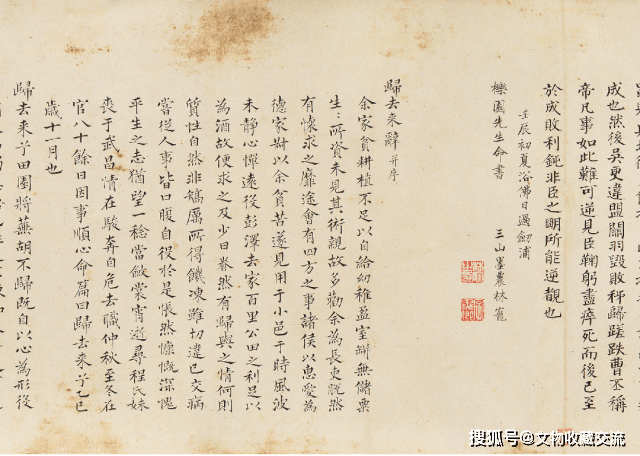 成也然後吳更違盟關羽毀敗秭歸蹉跌曹丕稱
帝凡事如此難可逆見臣鞠躬盡瘁死而後已至
於成敗利鈍非臣之明所能逆覩也
壬辰初夏浴佛日過劒浦
櫟園先生命書
三山墨農林寵
歸去來辭并序
余家貧耕植不足以自給幼稚盈室缾無儲粟
生〻所資未見其術親故多勸余為長吏脫然
有懷求之靡途會有四方之事諸侯以惠愛為
德家對以余貧苦遂見用于小邑于時風波
未靜心憚遠役彭澤去家百里公田之利足以
為酒故便求之及少日眷然有歸與之情何則
質性自然非矯厲所得饑凍雖切違己交病
嘗從人事皆口腹自役於是悵然慷慨深愧
平生之志猶望一稔當斂裳宵逝尋程氏妹
喪于武昌情在駿奔自免去職仲秋至冬在
官八十餘日因事順心命篇曰歸去來兮乙巳
歲十一月也
歸去來兮田園將蕪胡不歸既自以心為形役
搜狐号@文物收藏交流